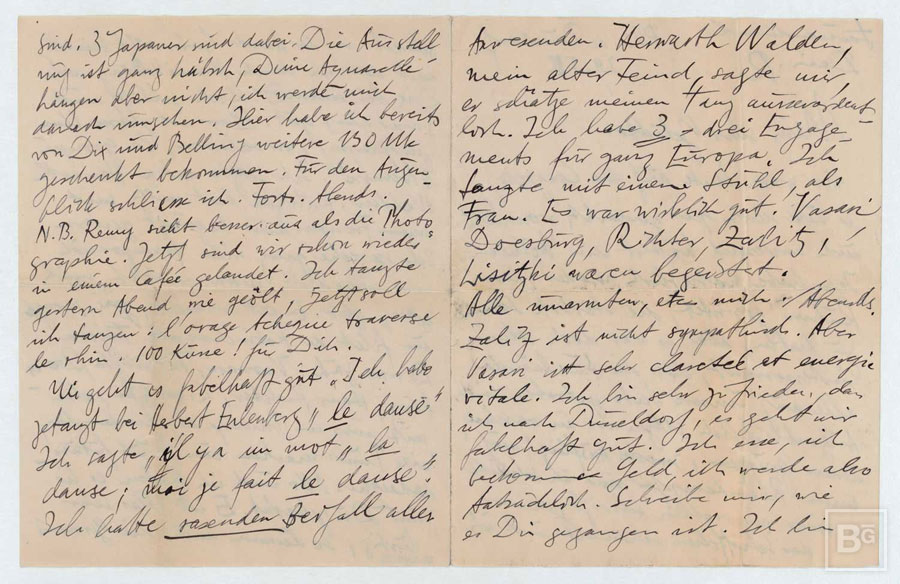 sind. 3 Japaner sind dabei. Die Ausstell
ung ist ganz hübsch, Deine Aquarelle
hängen aber nicht, ich werde mich
danach umsehen. Hier habe ich bereits
von Dix und Belling weitere 150 Mk
geschenkt bekommen. Für den Augen-
blick schliesse ich. Forts. Abends.
N.B. Remy sieht besser aus als die Photo
graphie. Jetzt sind wir schon wieder
in einem Café gelandet. Ich tanzte
gestern Abend wie geölt, jetzt soll
ich tanzen: l'orage tcheque traverse
le rhin. 100 Küsse! für Dich.
Mir geht es fabelhaft gut. Ich habe
getanzt bei Herbert Eulenberg „le danse"
Ich sagte „il y a un mot „la
danse; moi je fait le danse".
Ich hatte rasenden Beifall aller
Anwesenden. Herwarth Walden,
mein alter Feind, sagte mir,
er schätze meinen Tanz ausserordent-
lich. Ich habe 3 = drei Engage-
ments für ganz Europa. Ich
tanzte mit einem Stuhl, als
Frau. Es war wirklich gut. Vasari
Doesburg, Richter, Zalitz,
Lisitzki waren begeistert.
Alle umarmten, etc mich. Abends.
Zalitz ist nicht sympathisch. Aber
Vasari ist sehr et energie
vitale. Ich bin sehr zufrieden, dass
ich nach Düsseldorf, es geht mir
fabelhaft gut. Ich esse, ich
bekomme Geld, ich werde also
tatsächlich. Schreibe mir, wie
es Dir gegangen ist. Ich bin
BG